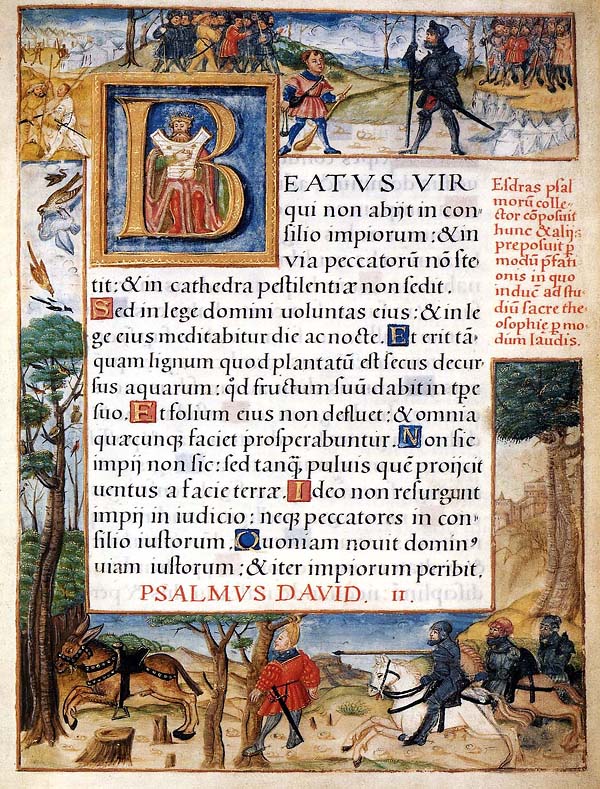 BEATVS VIR
qui non abijt in con-
silio impiorum: & in
via peccatorū nō ste
tit: & in cathedra pestilentiæ non sedit.
Sed in lege domini uoluntas eius: & in le
ge eius meditabitur die ac nocte. Et erit tā
quam lignum quod plantatū est secus decur
sus aquarum: qđ fructum suū dabit in tpe
suo. Et folium eius non defluet: & omnia
quæcunq; faciet prosperabuntur. Non sic
impij non sic: sed tanq̄, puluis quē proijcit
uentus a facie terræ. Ideo non resurgunt
impij in iudicio: neq; peccatores in con-
silio iustorum. Quoniam nouit dominꝰ
uiam iustorum: & iter impiorum peribit.
PSALMVS DAVID. II.
Esdras psal
morū colle-
ctor cōposuit
hunc & alijs
preposuit p̱
modū p̄fati
onis in quo
inducē ad stu
diū sacre the
osophie p̱ mo
dum laudis.